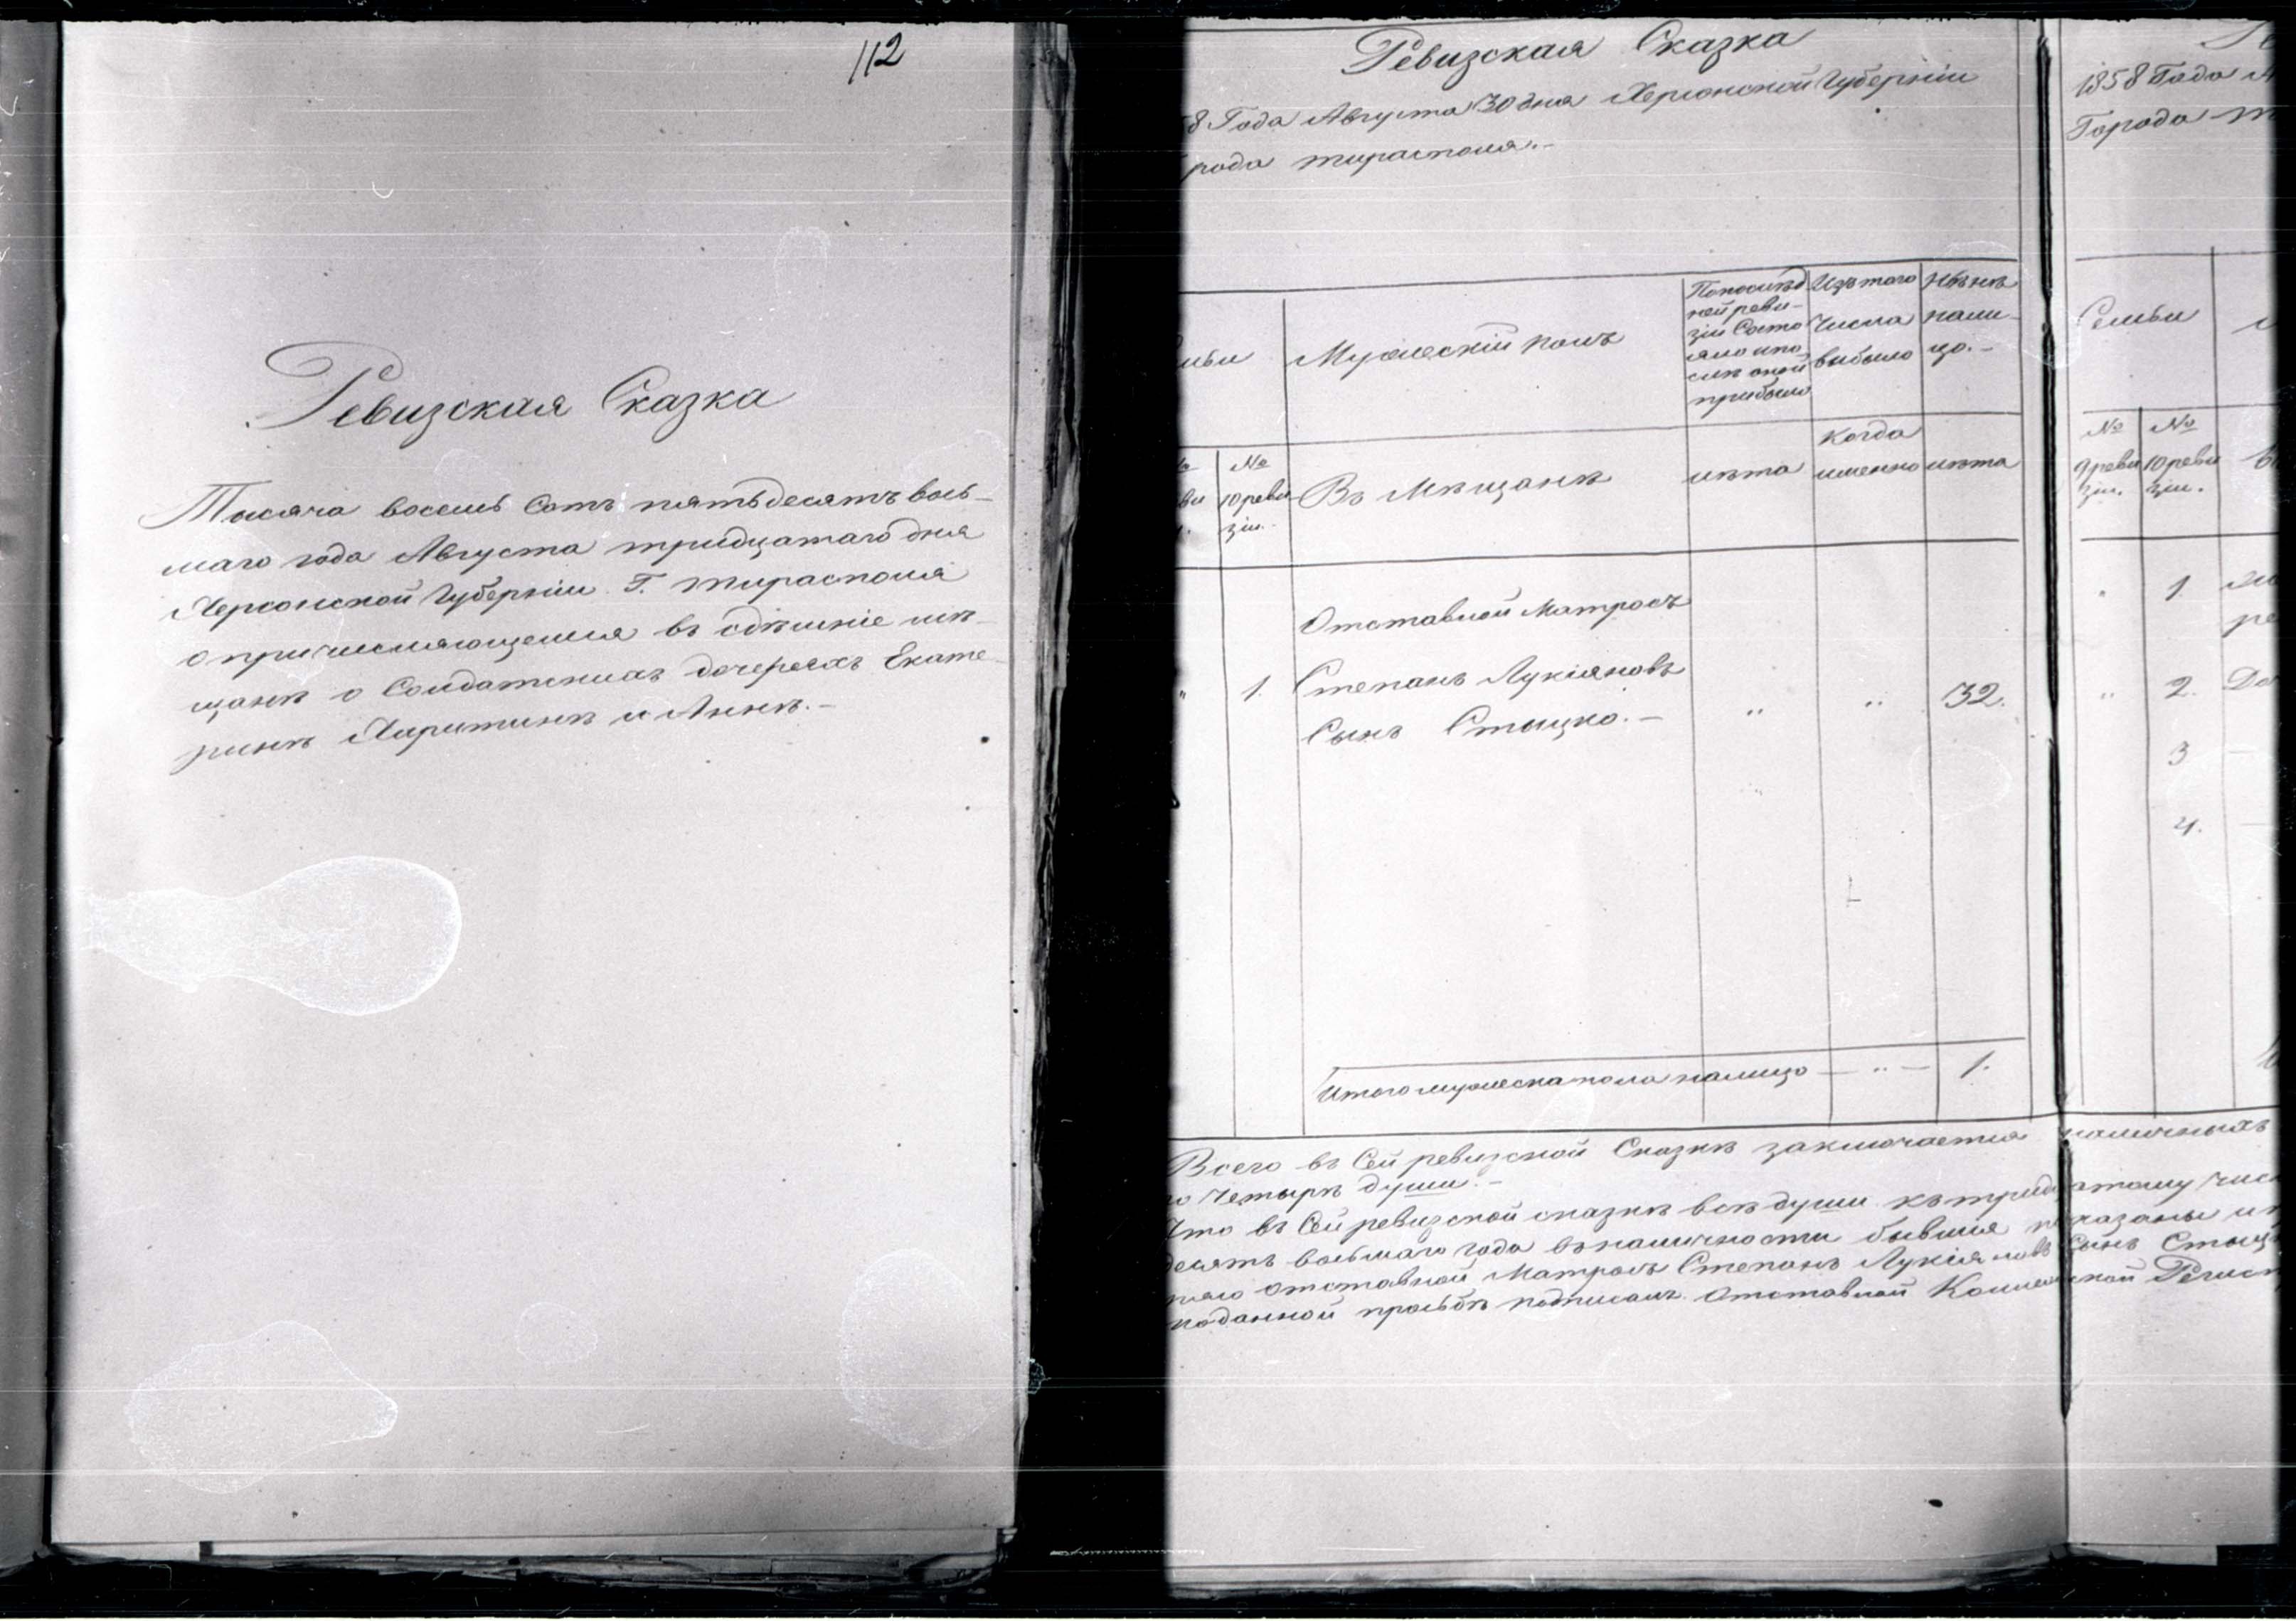 112
Ревизская Сказка
Тысяча восемь Сотъ пятьдесятъ вось-
маго года Августа тридцатаго дня
Херсонской Губерніи Г. Тирасполя
о причисляющемся въ здѣшніе мѣ-
щанѣ о Солдатскихъ дочеряхъ Екате-
ринѣ Харитинѣ и Аннѣ.-
Ревизская Сказка
8 Года Августа 30 дня Херсонской Губерніи
рода тирасполя.-
Мужескій полъ
Попослѣд
ней реви-
зіи Состо
яло ипо
слѣ оной
прибыло
Изътого
Числа
выбыло
Нынѣ
нали-
цо.-
№
10 реви
зіи.
Въ Мѣщанѣ
лѣта
когда
именно
лѣта
Отставной Матросъ
1. Степанъ Лукіяновъ
Сынъ Стыцко.- " " 32.
Итого мужеска пола налицо — " — 1.
Всего въ Сей ревизской Сказкѣ заключается наличныхъ
Четырѣ души.-
Что въ Сей ревизской сказкѣ всѣ души къ тридцатому чис
десятъ восьмаго года вналичности бывшія показаны и
отставной Матросъ Степанъ Лукіяновъ Сынъ Стыц
поданной прозьбѣ подписалъ Отставной Коллежской Регист
1858 Года А
Города т
Семьи
№
9 реви
зіи.
№
10 реви
зіи.
" 1.
" 2. До
3 —
4. —